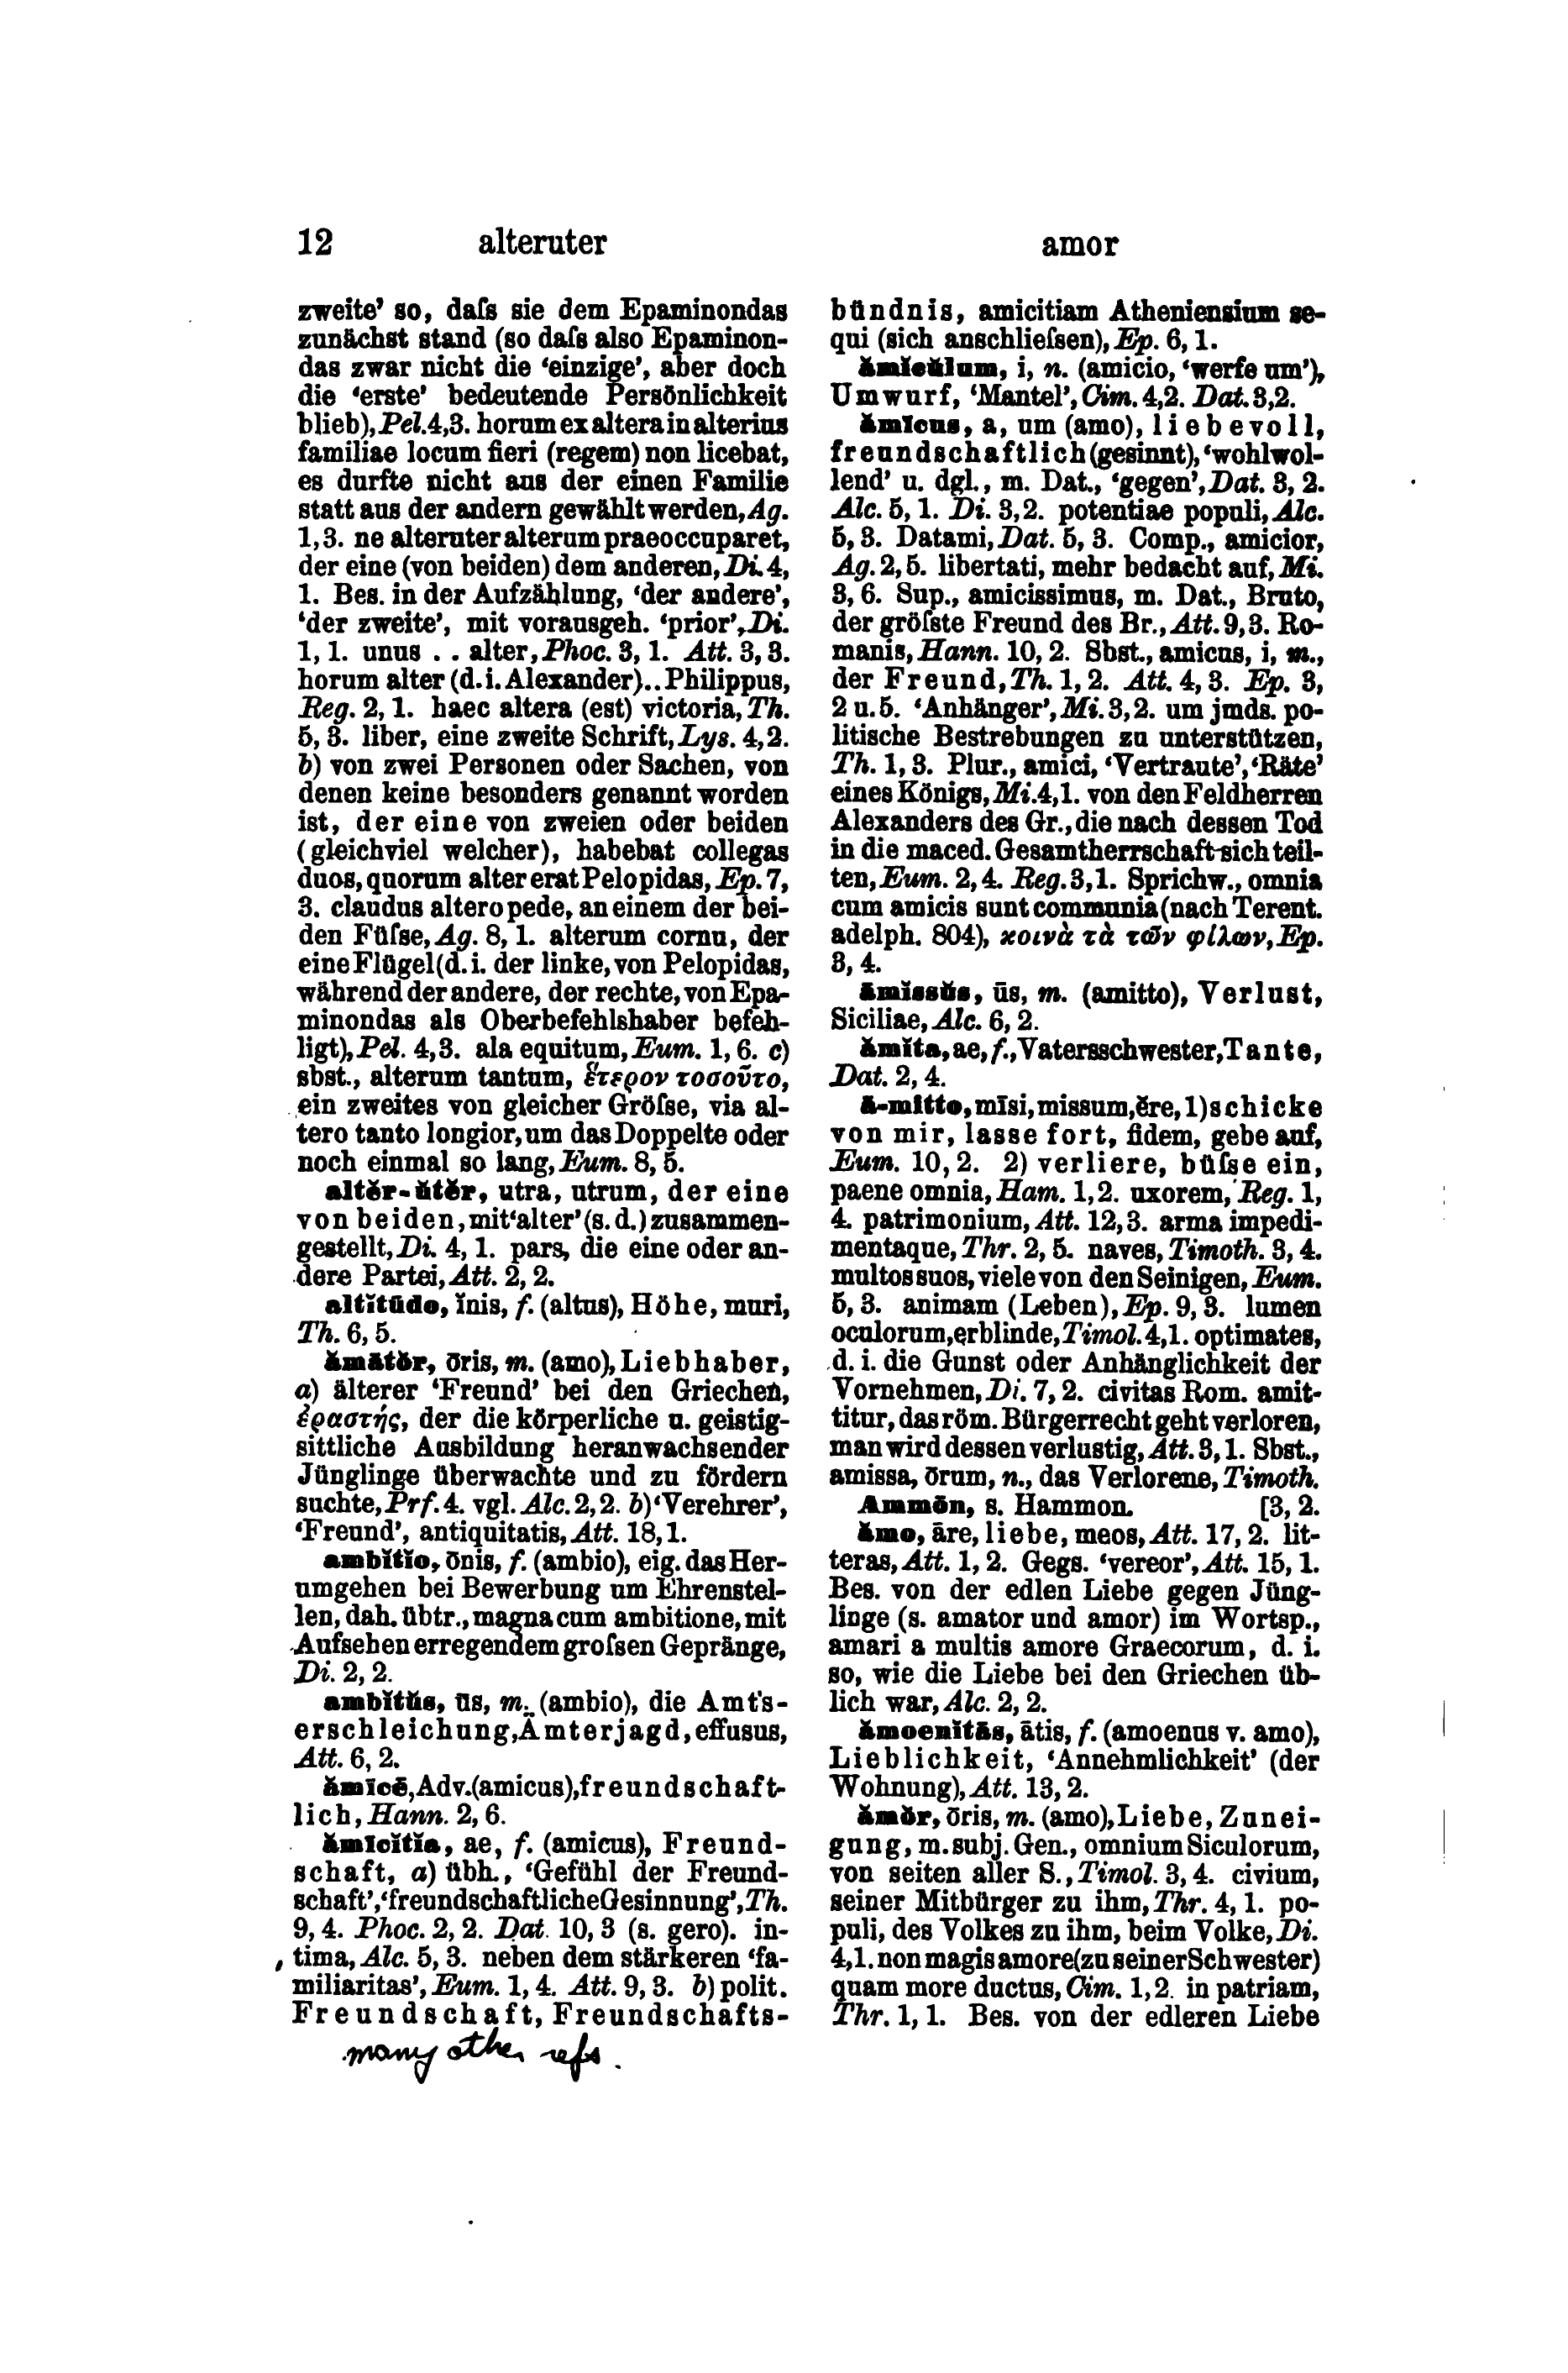 12 alteruter amor
zweite’ so, daſs sie dem Epaminondas
zunächst stand (so daſs also Epaminon-
das zwar nicht die ‘einzige’, aber doch
die ‘erste’ bedeutende Persönlichkeit
blieb), Pel. 4,3. horum ex altera in alterius
familiae locum fieri (regem) non licebat,
es durfte nicht aus der einen Familie
statt aus der andern gewählt werden, Ag.
1,3. ne alteruter alterum praeoccuparet,
der eine (von beiden) dem anderen, Di. 4,
1. Bes. in der Aufzählung, ‘der andere’,
‘der zweite’, mit vorausgeh. ‘prior’, Di.
1, 1. unus . . alter, Phoc. 3, 1. Att. 3, 3.
horum alter (d. i. Alexander) .. Philippus,
Reg. 2, 1. haec altera (est) victoria, Th.
5, 3. liber, eine zweite Schrift, Lys. 4,2.
b) von zwei Personen oder Sachen, von
denen keine besonders genannt worden
ist, der eine von zweien oder beiden
(gleichviel welcher), habebat collegas
duos, quorum alter erat Pelopidas, Ep. 7,
3. claudus altero pede, an einem der bei-
den Füſse, Ag. 8, 1. alterum cornu, der
eine Flügel (d. i. der linke, von Pelopidas,
während der andere, der rechte, von Epa-
minondas als Oberbefehlshaber befeh-
ligt), Pel. 4,3. ala equitum, Eum. 1, 6. c)
sbst., alterum tantum, ἕτερον τοσοῦτο,
ein zweites von gleicher Gröſse, via al-
tero tanto longior, um das Doppelte oder
noch einmal so lang, Eum. 8, 5.
altĕr-ŭtĕr, utra, utrum, der eine
von beiden, mit ‘alter’ (s. d.) zusammen-
gestellt, Di. 4, 1. pars, die eine oder an-
dere Partei, Att. 2, 2.
altĭtūdo, ĭnis, f. (altus), Höhe, muri,
Th. 6, 5.
ămātŏr, ōris, m. (amo), Liebhaber,
a) älterer ‘Freund’ bei den Griechen,
ἐραστής, der die körperliche u. geistig-
sittliche Ausbildung heranwachsender
Jünglinge überwachte und zu fördern
suchte, Prf. 4. vgl. Alc. 2, 2. b) ‘Verehrer’,
‘Freund’, antiquitatis, Att. 18, 1.
ambĭtĭo, ōnis, f. (ambio), eig. das Her-
umgehen bei Bewerbung um Ehrenstel-
len, dah. übtr., magna cum ambitione, mit
Aufsehen erregendem groſsen Gepränge,
Di. 2, 2.
ambĭtŭs, ūs, m. (ambio), die Amts-
erschleichung, Ämterjagd, effusus,
Att. 6, 2.
ămīcē, Adv. (amicus), freundschaft-
lich, Hann. 2, 6.
ămīcĭtĭa, ae, f. (amicus), Freund-
schaft, a) übh., ‘Gefühl der Freund-
schaft’, ‘freundschaftliche Gesinnung’, Th.
9, 4. Phoc. 2, 2. Dat. 10, 3 (s. gero). in-
tima, Alc. 5, 3. neben dem stärkeren ‘fa-
miliaritas’, Eum. 1, 4. Att. 9, 3. b) polit.
Freundschaft, Freundschafts-
many other refs.
bündnis, amicitiam Atheniensium se-
qui (sich anschlieſsen), Ep. 6, 1.
ămĭcŭlum, i, n. (amicio, ‘werfe um’),
Umwurf, ‘Mantel’, Cim. 4,2. Dat. 3,2.
ămīcus, a, um (amo), liebevoll,
freundschaftlich (gesinnt), ‘wohlwol-
lend’ u. dgl., m. Dat., ‘gegen’, Dat. 3, 2.
Alc. 5, 1. Di. 3,2. potentiae populi, Alc.
5, 3. Datami, Dat. 5, 3. Comp., amicior,
Ag. 2, 5. libertati, mehr bedacht auf, Mi.
3, 6. Sup., amicissimus, m. Dat., Bruto,
der gröſste Freund des Br., Att. 9,3. Ro-
manis, Hann. 10, 2. Sbst., amicus, i, m.,
der Freund, Th. 1, 2. Att. 4, 3. Ep. 3,
2 u. 5. ‘Anhänger’, Mi. 3,2. um jmds. po-
litische Bestrebungen zu unterstützen,
Th. 1, 3. Plur., amici, ‘Vertraute’, ‘Räte’
eines Königs, Mi. 4,1. von den Feldherren
Alexanders des Gr., die nach dessen Tod
in die maced. Gesamtherrschaft sich teil-
ten, Eum. 2, 4. Reg. 3,1. Sprichw., omnia
cum amicis sunt communia (nach Terent.
adelph. 804), κοινὰ τὰ τῶν φίλων, Ep.
3, 4.
āmissŭs, ūs, m. (amitto), Verlust,
Siciliae, Alc. 6, 2.
ămĭta, ae, f., Vatersschwester, Tante,
Dat. 2, 4.
ā-mitto, mīsi, missum, ĕre, 1) schicke
von mir, lasse fort, fidem, gebe auf,
Eum. 10, 2. 2) verliere, büſse ein,
paene omnia, Ham. 1,2. uxorem, Reg. 1,
4. patrimonium, Att. 12,3. arma impedi-
mentaque, Thr. 2, 5. naves, Timoth. 3, 4.
multos suos, viele von den Seinigen, Eum.
5, 3. animam (Leben), Ep. 9, 3. lumen
oculorum, erblinde, Timol. 4,1. optimates,
d. i. die Gunst oder Anhänglichkeit der
Vornehmen, Di. 7, 2. civitas Rom. amit-
titur, das röm. Bürgerrecht geht verloren,
man wird dessen verlustig, Att. 3, 1. Sbst.,
amissa, ōrum, n., das Verlorene, Timoth.
Ammōn, s. Hammon. [3, 2.
ămo, āre, liebe, meos, Att. 17, 2. lit-
teras, Att. 1, 2. Gegs. ‘vereor’, Att. 15, 1.
Bes. von der edlen Liebe gegen Jüng-
linge (s. amator und amor) im Wortsp.,
amari a multis amore Graecorum, d. i.
so, wie die Liebe bei den Griechen üb-
lich war, Alc. 2, 2.
ămoenĭtās, ātis, f. (amoenus v. amo),
Lieblichkeit, ‘Annehmlichkeit’ (der
Wohnung), Att. 13, 2.
ămŏr, ōris, m. (amo), Liebe, Zunei-
gung, m. subj. Gen., omnium Siculorum,
von seiten aller S., Timol. 3, 4. civium,
seiner Mitbürger zu ihm, Thr. 4, 1. po-
puli, des Volkes zu ihm, beim Volke, Di.
4,1. non magis amore (zu seiner Schwester)
quam more ductus, Cim. 1,2. in patriam,
Thr. 1, 1. Bes. von der edleren Liebe